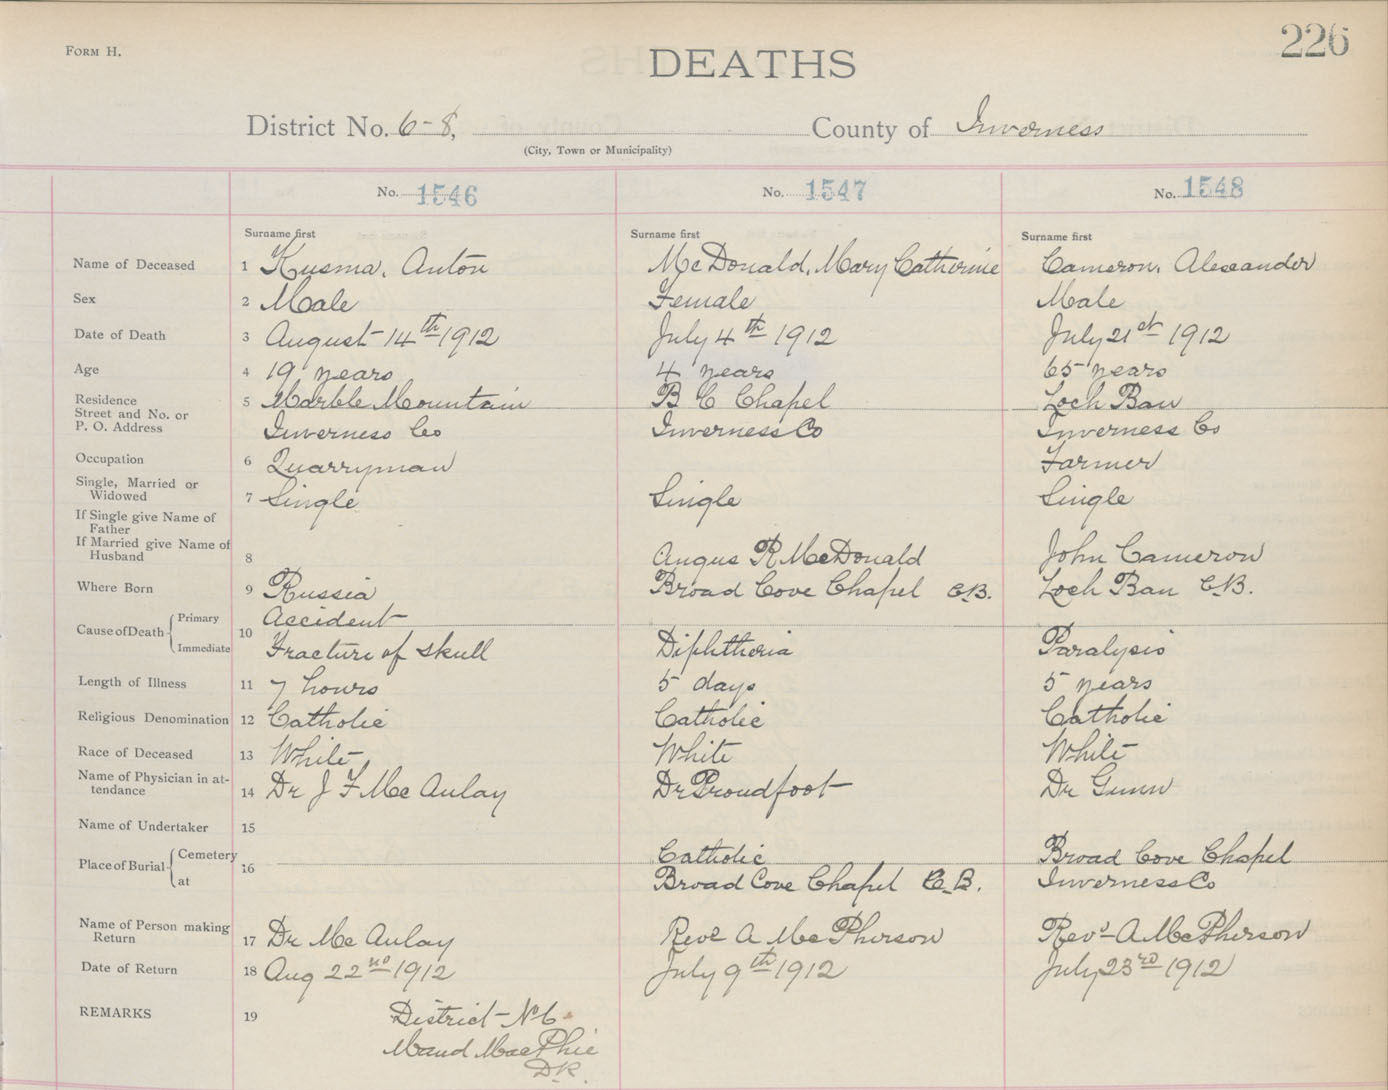 FORM H.
226
DEATHS
District No. 6-8, County of Inverness
(City, Town or Municipality)
No. 1546 No. 1547 No. 1548
Surname first Surname first Surname first
Name of Deceased 1 Kusma, Anton McDonald, Mary Catherine Cameron, Alexander
Sex 2 Male Female Male
Date of Death 3 August 14th 1912 July 4th 1912 July 21st 1912
Age 4 19 years 4 years 65 years
Residence 5 Marble Mountain B C Chapel Loch Ban
Street and No. or
P. O. Address Inverness Co Inverness Co Inverness Co
Occupation 6 Quarryman Farmer
Single, Married or
Widowed 7 Single Single Single
If Single give Name of
Father
If Married give Name of
Husband 8 Angus R McDonald John Cameron
Where Born 9 Russia Broad Cove Chapel C.B. Loch Ban C.B.
Cause of Death Primary 10 Accident
Immediate Fracture of skull Diphtheria Paralysis
Length of Illness 11 7 hours 5 days 5 years
Religious Denomination 12 Catholic Catholic Catholic
Race of Deceased 13 White White White
Name of Physician in at-
tendance 14 Dr J F McAulay Dr Proudfoot Dr Gunn
Name of Undertaker 15
Place of Burial Cemetery 16 Catholic Broad Cove Chapel
at Broad Cove Chapel C.B. Inverness Co
Name of Person making
Return 17 Dr McAulay Revd A McPherson Revd A McPherson
Date of Return 18 Aug 22nd 1912 July 9th 1912 July 23rd 1912
REMARKS 19 District No 6
Maud MacPhie
D.R.